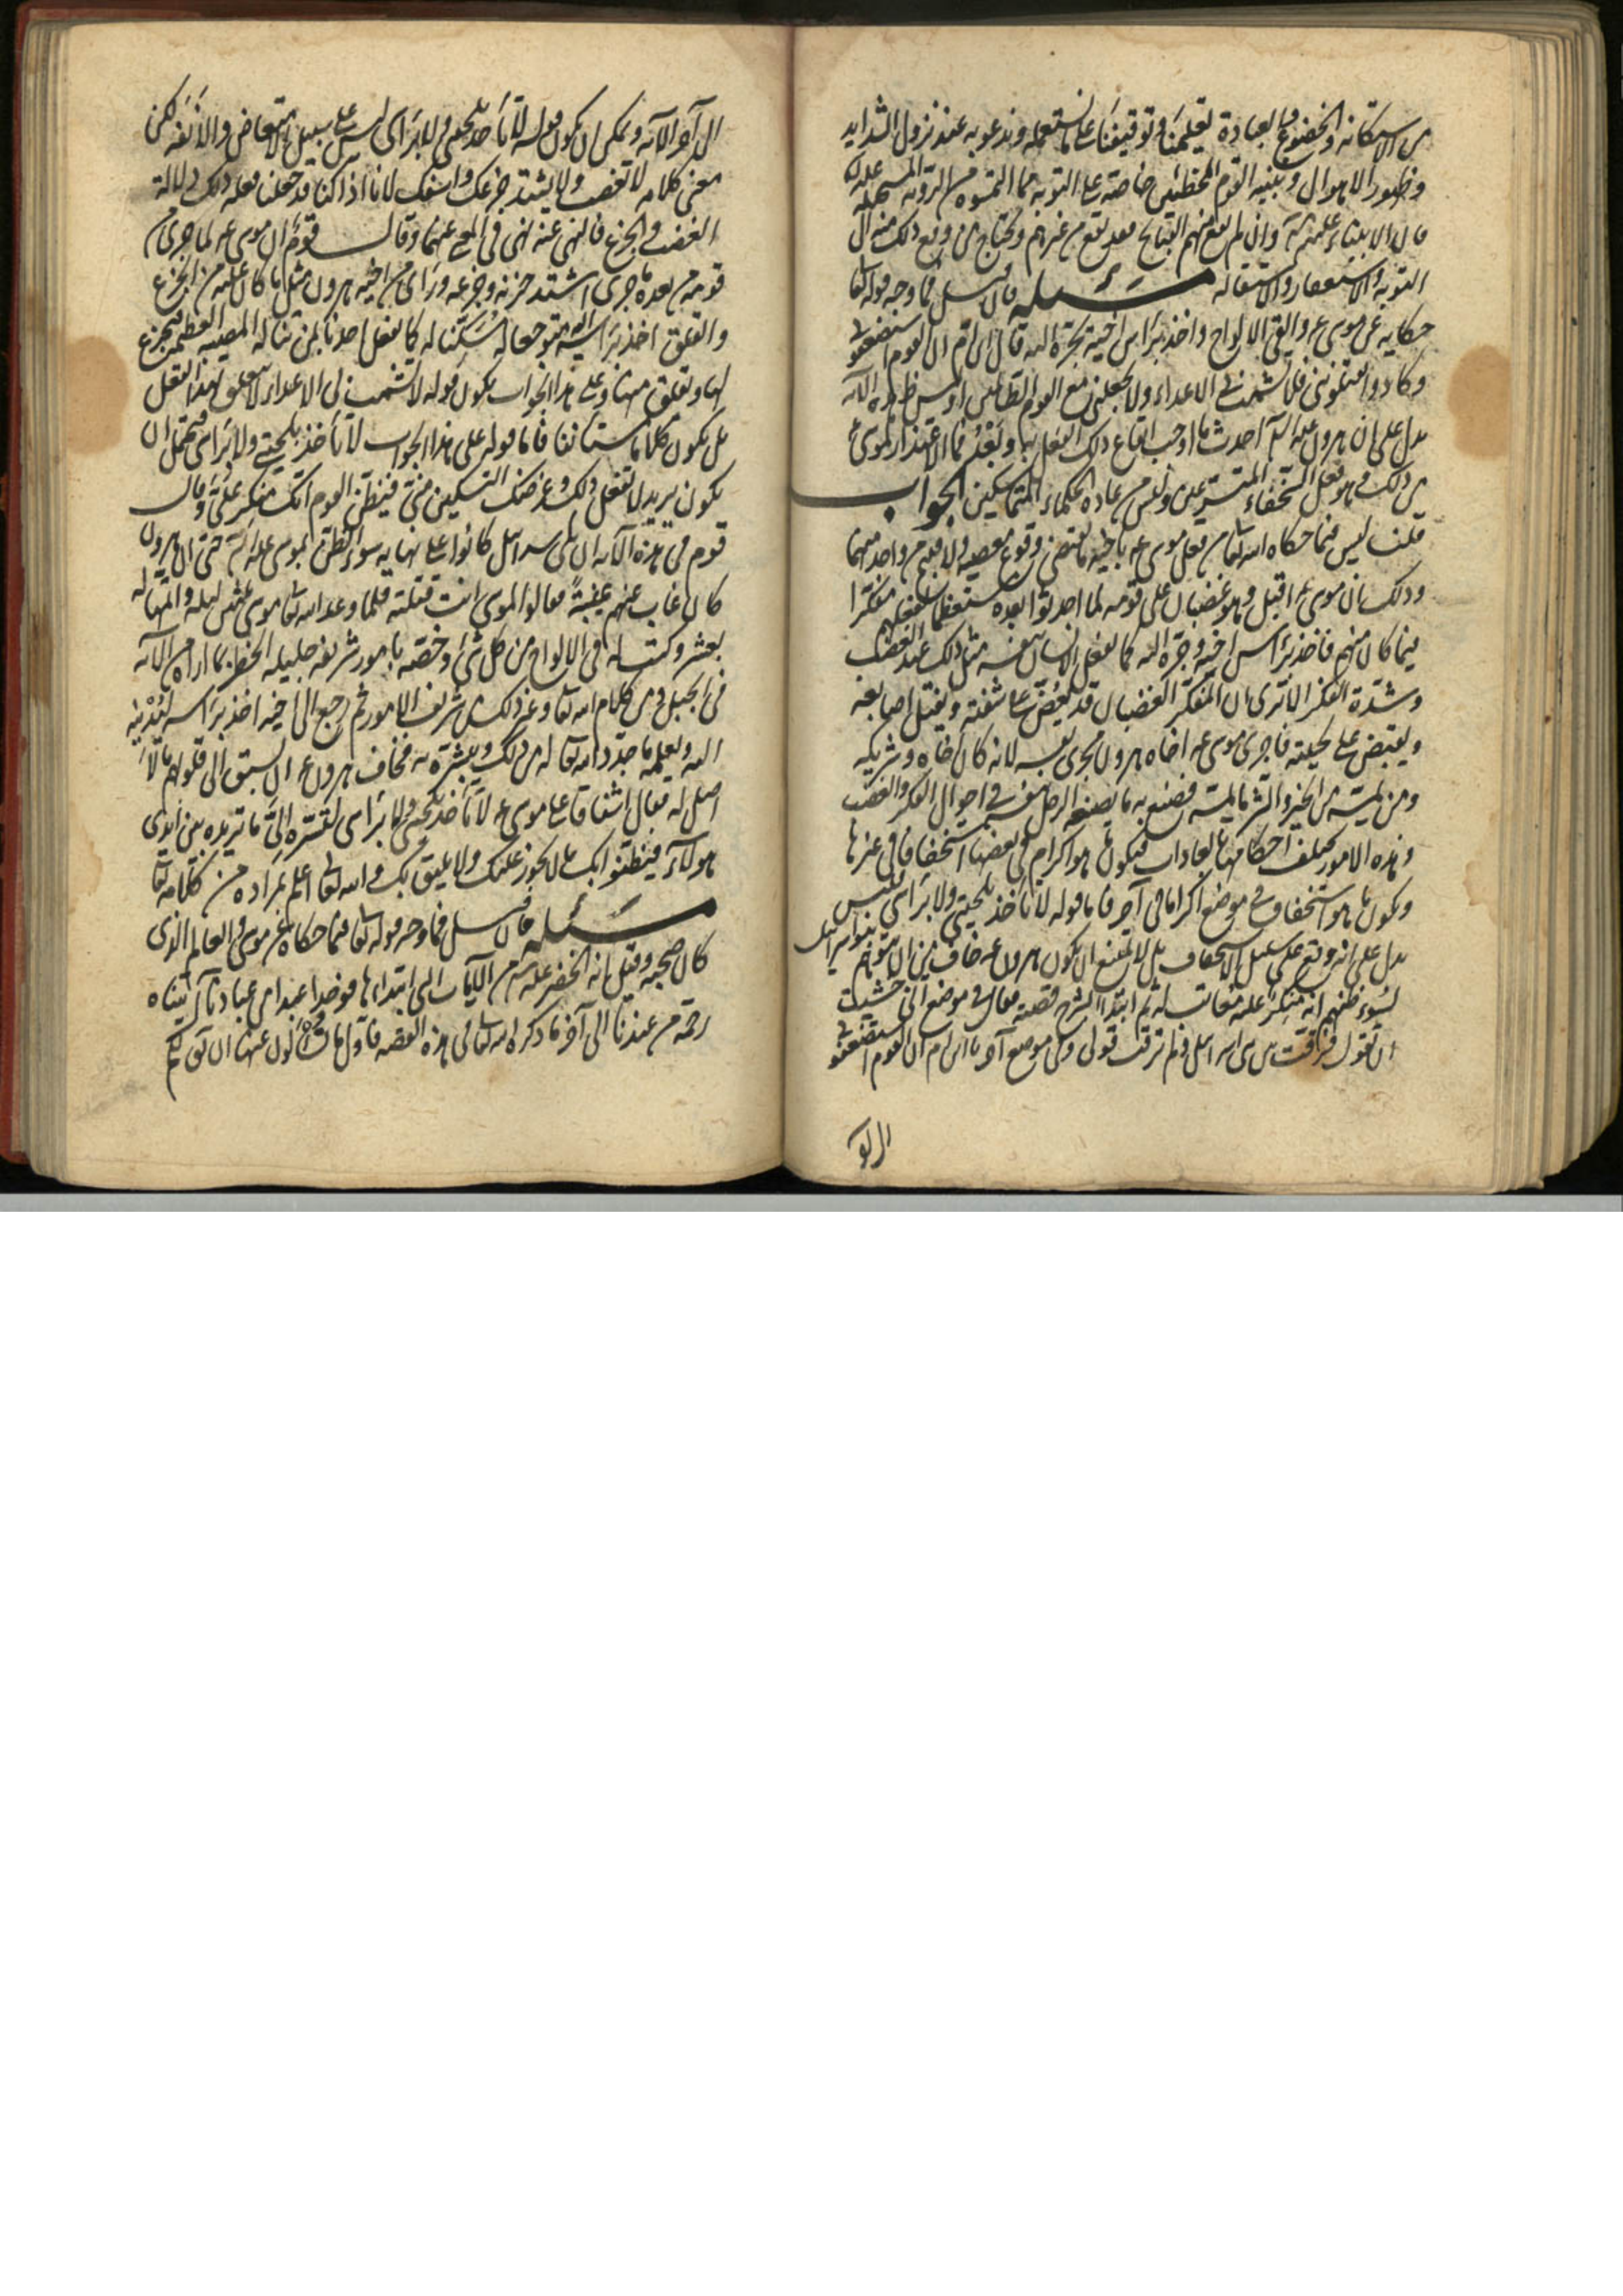 من الاستكانة والخضوع والعبادة تعليمنا وتوقيفنا على ما نستعمله وندعو به عند نزول الشدايد
وظهور الاهوال وتنبيه القوم المخطئين خاصة على التوبة مما التمسوه من الروية المستحيلة عليه
فان الانبياء عليهم السلم وان لم يقع منهم القبايح فقد يقع من غيرهم ويحتاج من وقع ذلك منه الى
التوبة والاستغفار والاستقالة مسئله فان سئل فما وجه قوله تعالى
حكاية عن موسى ع والقى الالواح واخذ براس اخيه يجره اليه قال ابن ام ان القوم استضعفونى
وكادوا يقتلوننى فلا تشمت بى الاعداء ولا تجعلنى مع القوم الظالمين اوليس ظاهر هذه الآية
يدل على ان هرون عليه السلم احدث ما اوجب ايقاع ذلك الفعل به وبعد فما الاعتذار لموسى ع
من ذلك وهو فعل السخفاء المتسرعين وليس من عادة الحكماء المتماسكين الجواب
قلنا ليس فيما حكاه الله تعالى من فعل موسى ع باخيه ما يقتضى وقوع معصية ولا قبيح من واحد منهما
وذلك ان موسى ع اقبل وهو غضبان على قومه لما احدثوا بعده مستعظما لفعلهم مفكرا
فيما كان منهم فاخذ براس اخيه وجره اليه كما يفعل الانسان بنفسه مثل ذلك عند الغضب
وشدة الفكر الا ترى ان المفكر الغضبان قد يعض على شفته ويفتل اصابعه
ويقبض على لحيته فاجرى موسى ع اخاه هرون مجرى نفسه لانه كان اخاه وشريكه
ومن يمسه من الخير والشر ما يمسه فصنع به ما يصنعه الرجل بنفسه فى احوال الفكر والغضب
وهذه الامور يختلف احكامها بالعادات فيكون ما هو اكرام فى بعضها استخفافا فى غيرها
ويكون ما هو استخفاف فى موضع اكراما فى آخر فاما قوله لا تاخذ بلحيتى ولا براسى فليس
يدل على انه وقع على سبيل الاستخفاف بل لا يمتنع ان يكون هرون ع خاف من ان يتوهم بنو اسرائيل
لسوء ظنهم انه منكر عليه معاتب له ثم ابتدا بشرح قصته فقال فى موضع انى خشيت
ان تقول فرقت بين بنى اسرائيل ولم ترقب قولى وفى موضع آخر يا ابن ام ان القوم استضعفونى
الى آخر الآية ويمكن ان يكون قوله لا تاخذ بلحيتى ولا براسى ليس على سبيل الامتعاض والانفة لكن
معنى كلامه لا تغضب ولا يشتد جزعك واسفك لانا اذا كنا قد جعلنا فعله ذلك دلالة
الغضب والجزع فالنهى عنه نهى فى المعنى عنهما وقال قوم ان موسى ع لما جرى من
قومه من بعده ما جرى اشتد حزنه وجزعه وراى من اخيه هرون مثل ما كان عليه من الجزع
والقلق اخذ براسه اليه متوجعا له مسكنا له كما يفعل احدنا بمن تناله المصيبة العظيمة فيجزع
لها ويقلق منها وعلى هذا الجواب يكون قوله لا تشمت بى الاعداء لا يتعلق بهذا الفعل
بل يكون كلاما مستانفا فاما قوله على هذا الجواب لا تاخذ بلحيتى ولا براسى فيحتمل ان
يكون يريد لا تفعل ذلك وغرضك التسكين منى فيظن القوم انك منكر على وقال
قوم فى هذه الآية ان بنى اسرائيل كانوا على نهاية سوء الظن بموسى عليه السلم حتى ان هرون
كان غاب عنهم غيبة فقالوا لموسى انت قتلته فلما وعد الله تعالى موسى ثلثين ليلة واتمها له
بعشر وكتب له فى الالواح من كل شئ وخصه بامور شريفة جليلة الخطر بما اراه من الآية
فى الجبل ومن كلام الله تعالى وغير ذلك من شريف الامور ثم رجع الى اخيه اخذ براسه ليدنيه
اليه ويعلمه ما جدد الله تعالى له من ذلك ويبشره به فخاف هرون ع ان يسبق الى قلوبهم ما لا
اصل له فقال اشفاقا على موسى ع لا تاخذ بلحيتى ولا براسى لتسره الى ما تريده بين ايدى
هولآء فيظنوا بك ما لا يجوز عليك ولا يليق بك والله تعالى اعلم بمراده من كلامه تعالى
مسئله فان سئل فما وجه قوله تعالى فيما حكاه عن موسى والعالم الذى
كان صحبه وقيل انه الخضر عليه السلم من الآيات التى ابتداءها فوجدا عبدا من عبادنا آتيناه
رحمة من عندنا الى آخر ما ذكره الله تعالى فى هذه القصة فاول ما تسالون عنها ان يق لكم